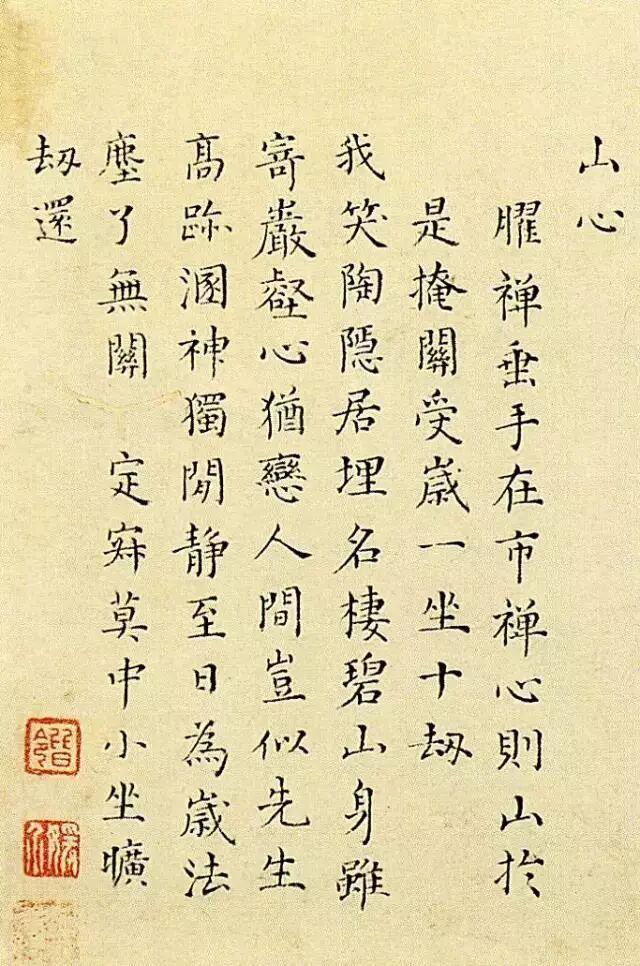 山心
臞禪垂手在市禪心則山扵
是掩關受歲一坐十刼
我笑陶隱居埋名棲碧山身雖
寄巖壑心猶戀人間豈似先生
高跡溷神獨閒靜至日為歲法
塵了無關 定寂莫中小坐曠
刼還